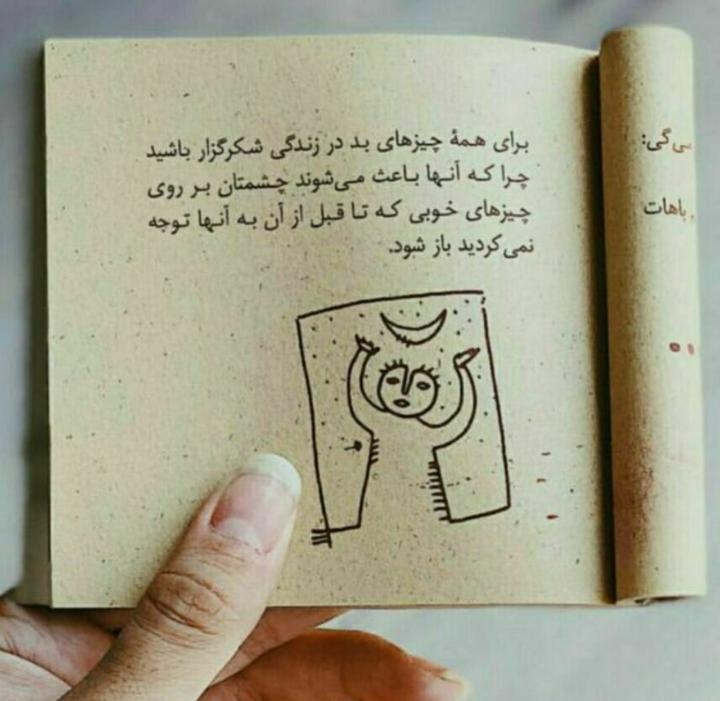 برای همهٔ چیزهای بد در زندگی شکرگزار باشید
چرا که آنها باعث می‌شوند چشمتان بر روی
چیزهای خوبی که تا قبل از آن به آنها توجه
نمی‌کردید باز شود.
باهات